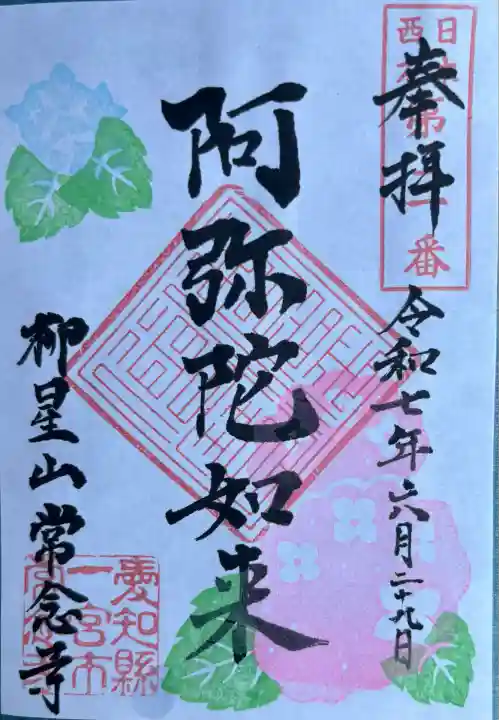 奉拝
令和七年六月二十九日
阿弥陀如来
柳星山常念寺
愛知縣
一宮市